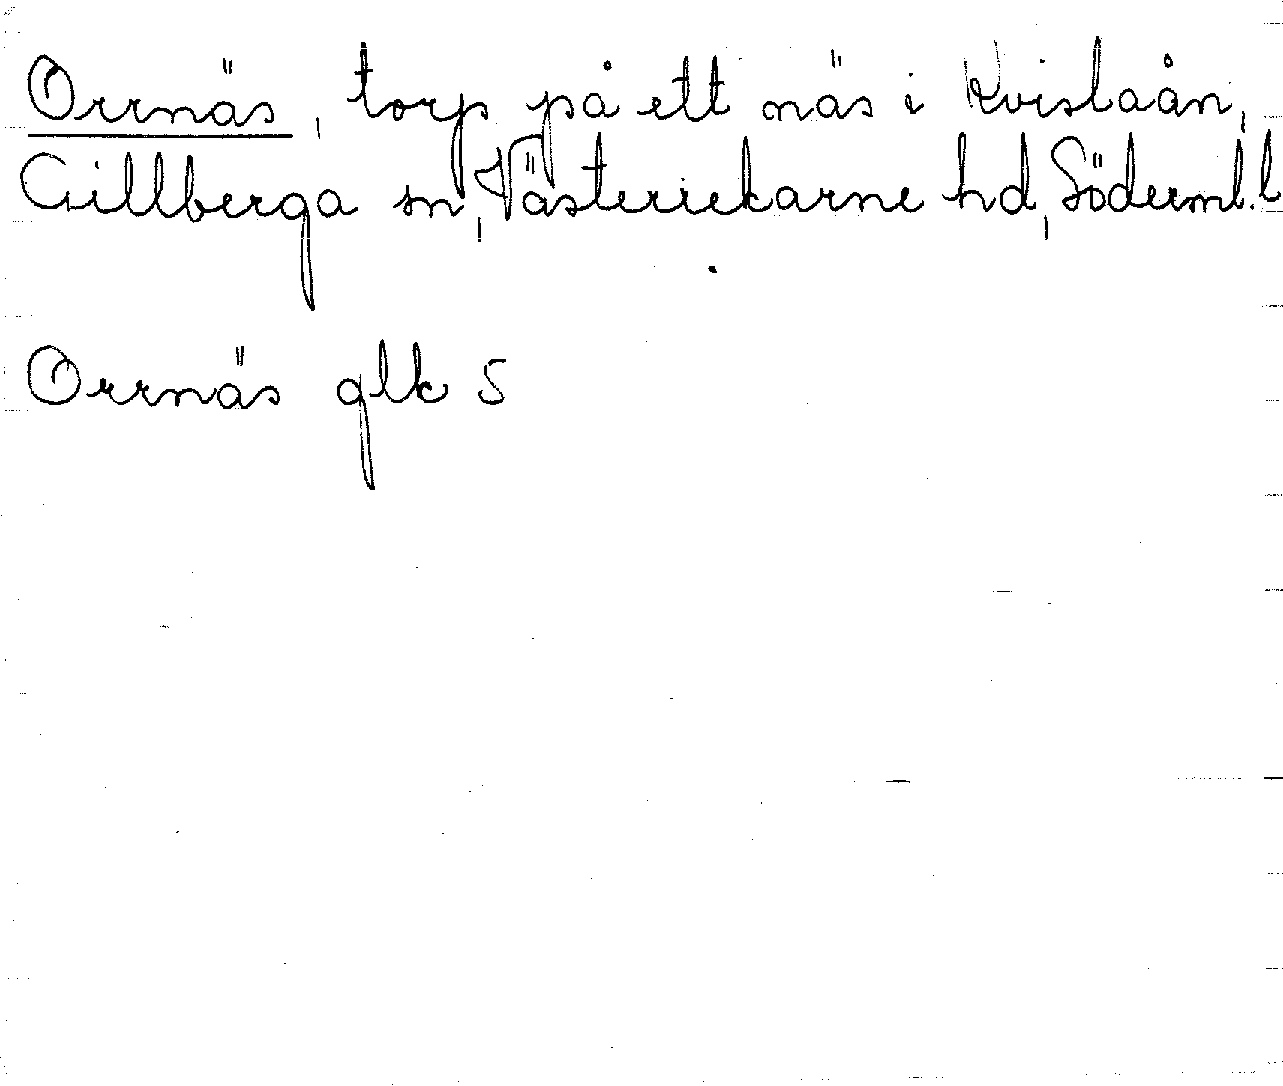 Orrnäs, torp på ett näs i Kvistaån,
Gillberga sn, Västerrekarne hd, Söderml. l
Orrnäs glk 5